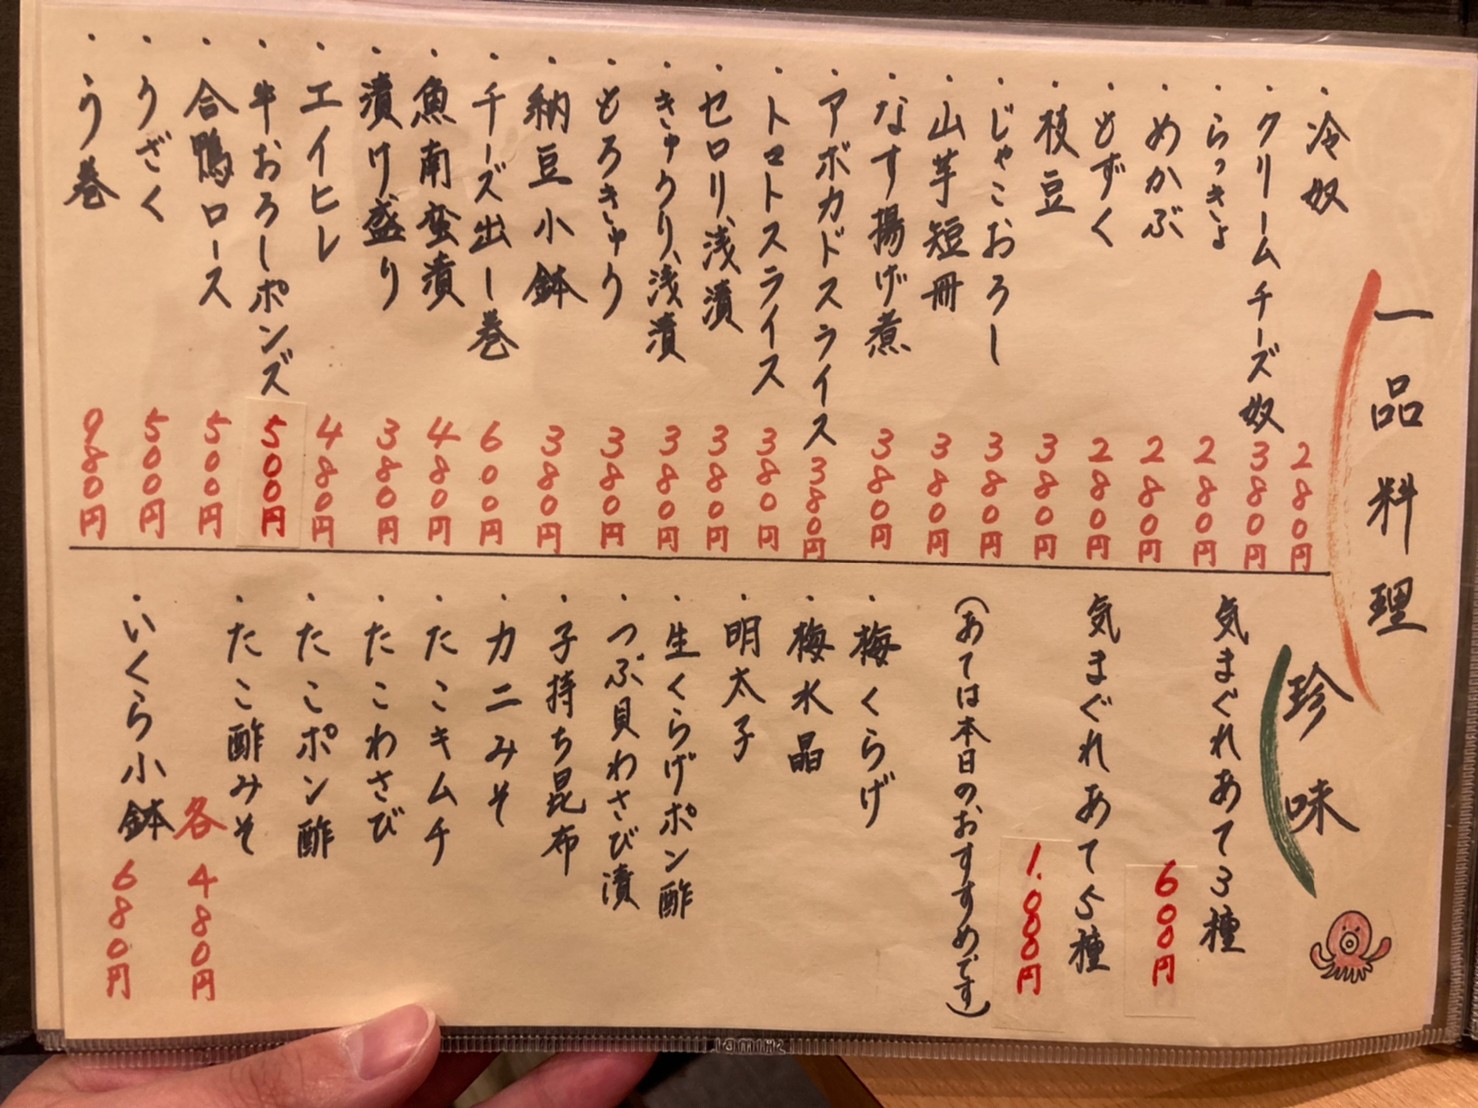 一品料理
・冷奴 280円
・クリームチーズ奴 380円
・らっきょ 280円
・めかぶ 280円
・もずく 280円
・枝豆 380円
・じゃこおろし 380円
・山芋短冊 380円
・なす揚げ煮 380円
・アボカドスライス 380円
・トマトスライス 380円
・セロリ浅漬 380円
・きゅうり浅漬 380円
・もろきゅう 380円
・納豆小鉢 380円
・チーズ出し巻 600円
・魚南蛮漬 480円
・漬け盛り 380円
・エイヒレ 480円
・牛おろしポンズ 500円
・合鴨ロース 500円
・うざく 500円
・う巻 980円
珍味
気まぐれあて3種 600円
気まぐれあて5種 1.000円
(あては本日のおすすめです)
・梅くらげ
・梅水晶
・明太子
・生くらげポン酢
・つぶ貝わさび漬
・子持ち昆布
・カニみそ
・たこキムチ
・たこわさび
・たこポン酢
・たこ酢みそ
各480円
・いくら小鉢 680円